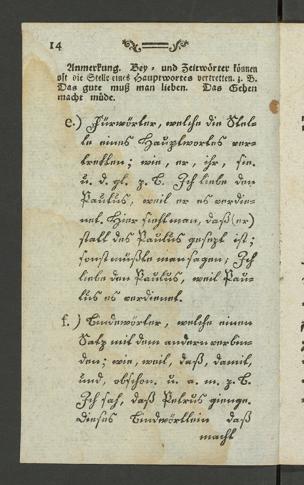 14
Anmerkung. Bey- und Zeitwörter können
oft die Stelle eines Hauptwortes vertretten. z. B.
Das gute muß man lieben. Das Gehen
macht müde.
e.) Fürwörter, welche die Stel-
le eines Hauptwortes ver-
tretten; wie, er, ihr, sie.
u. d. gl. z. B. Ich liebe den
Paulus, weil er es verdie-
net. Hier sieht man, daß (er)
statt des Paulus gesezt ist;
sonst müßte man sagen; Ich
liebe den Paulus, weil Pau-
lus es verdienet.
f.) Bindewörter, welche einen
Satz mit dem andern verbin-
den; wie, weil, daß, damit,
und, obschon. u. a. m. z. B.
Ich sah, daß Petrus gienge.
Dieses Bindewörtlein daß
macht